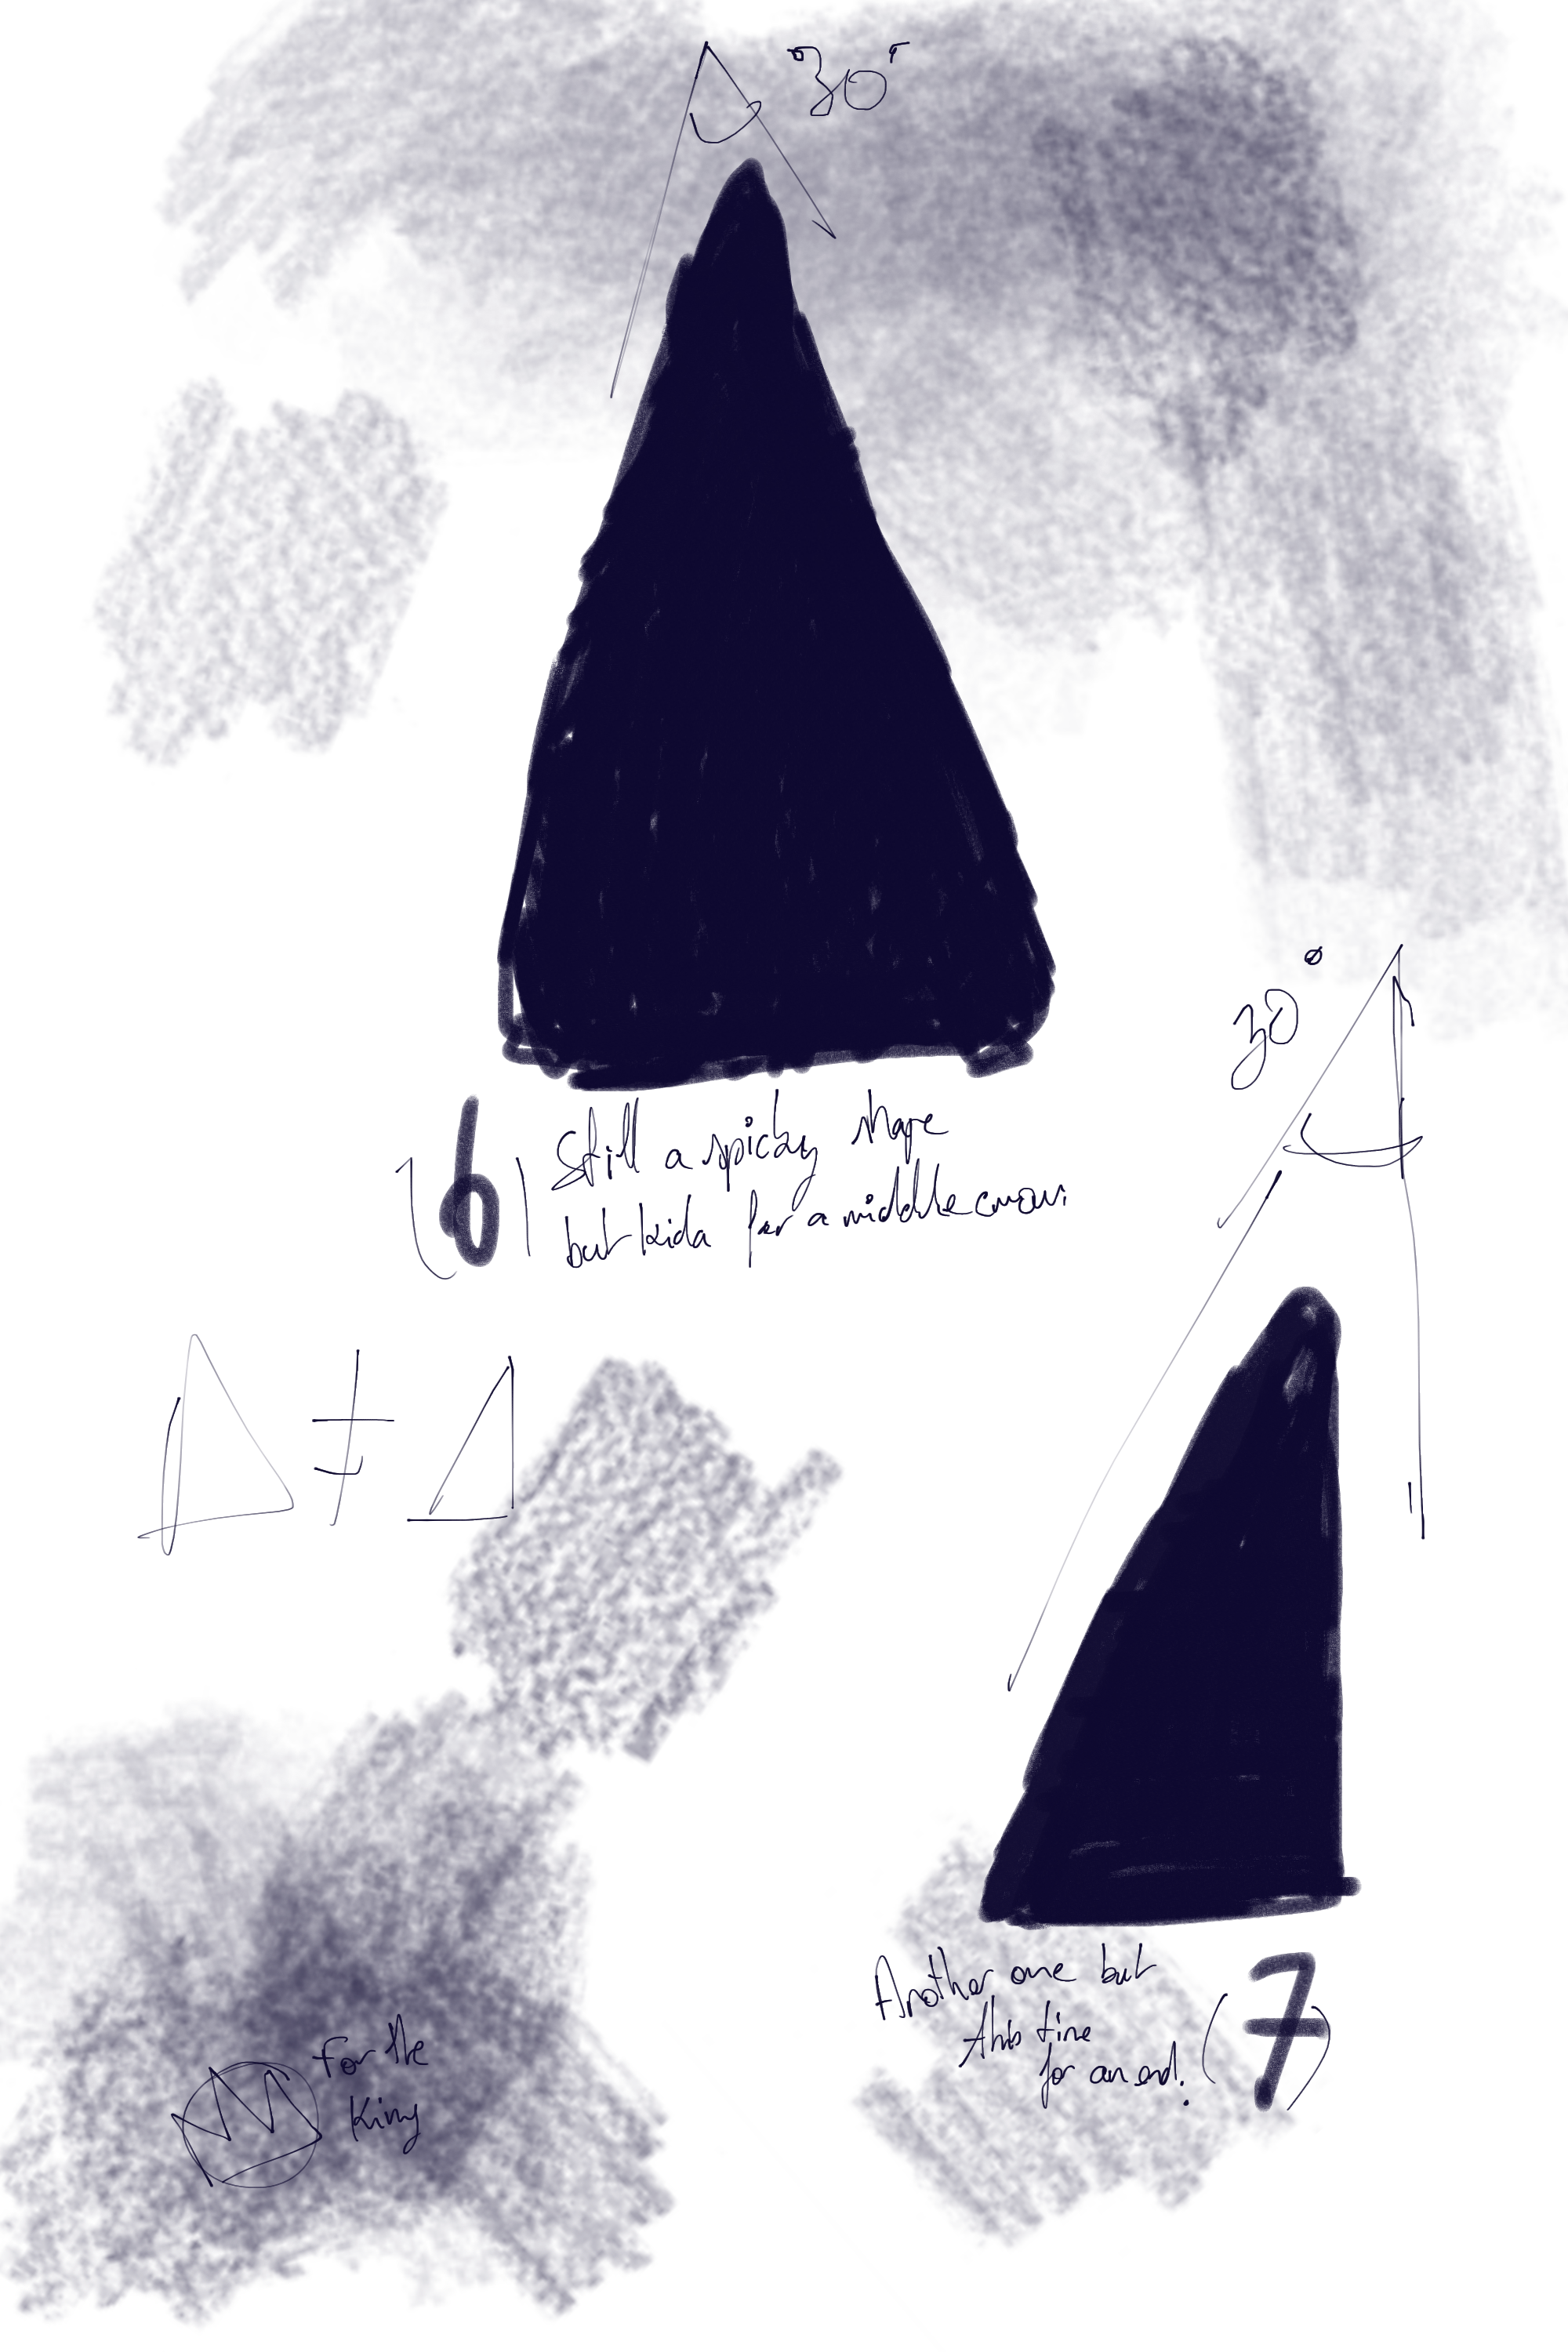 30°
(6) Still a spicky shape
but kida for a middle
30°
Δ ≠ Δ
Another one but
this time
for an end. (7)
For the
King